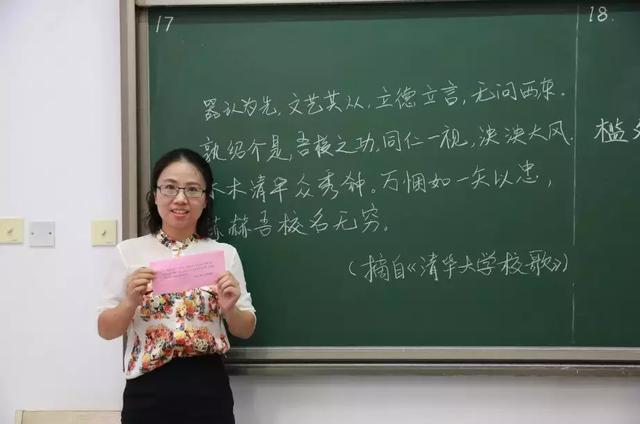 17
器认为先,文艺其从,立德立言,无问西东.
孰绍介是,吾校之功,同仁一视,泱泱大风.
木清华众秀钟。万悃如一矢以忠,
赫吾校名无穷。
(摘自《清华大学校歌》)
18.
槛